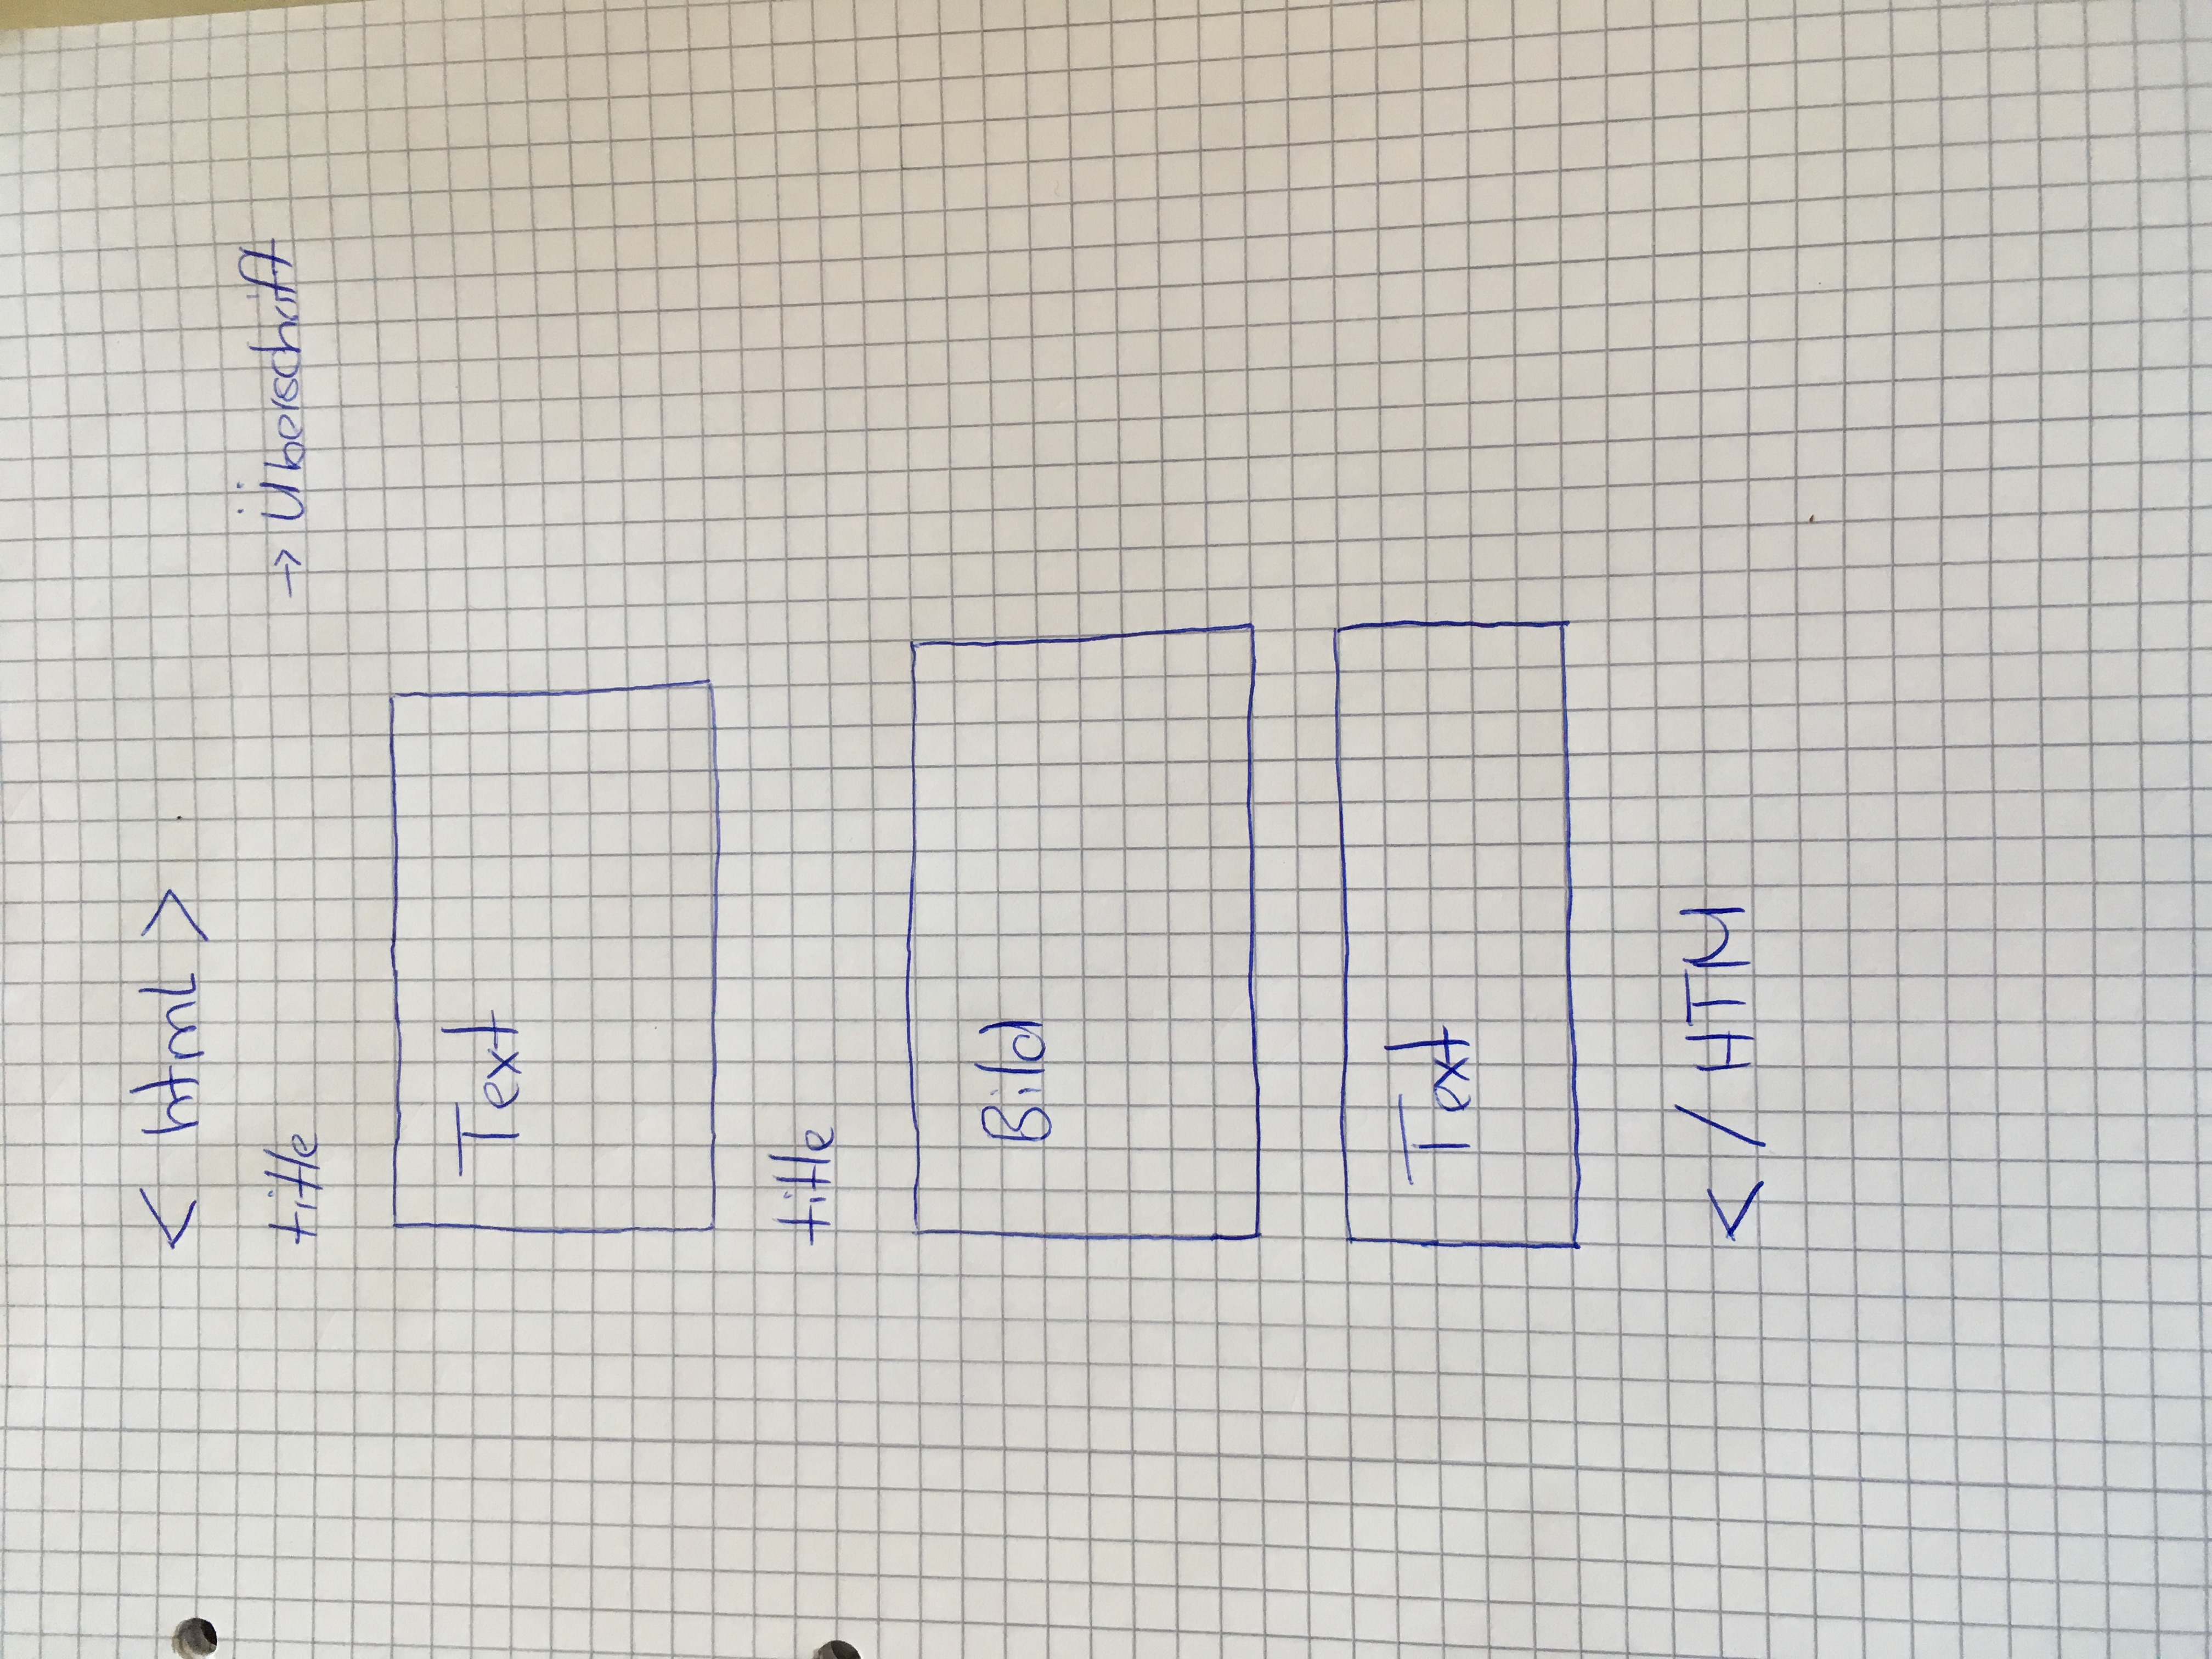 < html >
title → Überschrift
Text
title
Bild
Text
</ HTM